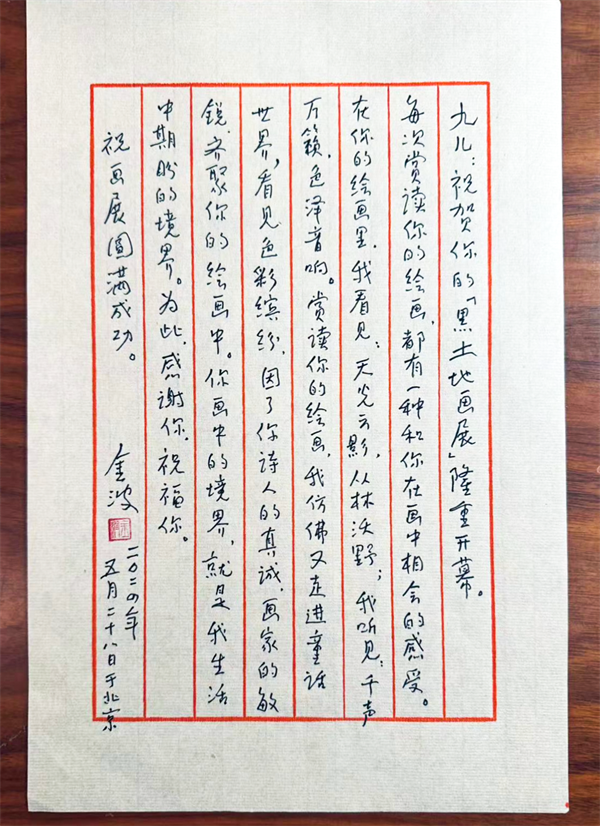 九儿：祝贺你的「黑土地画展」隆重开幕。
每次赏读你的绘画，都有一种和你在画中相会的感受。
在你的绘画里，我看见：天光云影，丛林沃野；我听见：千声
万籁，色泽音响。赏读你的绘画，我仿佛又走进童话
世界，看见色彩缤纷，因了你诗人的真诚，画家的敏
锐，齐聚你的绘画中。你画中的境界，就是我生活
中期盼的境界。为此，感谢你，祝福你。
祝画展圆满成功。
金波
二〇二四年
五月二十八日于北京